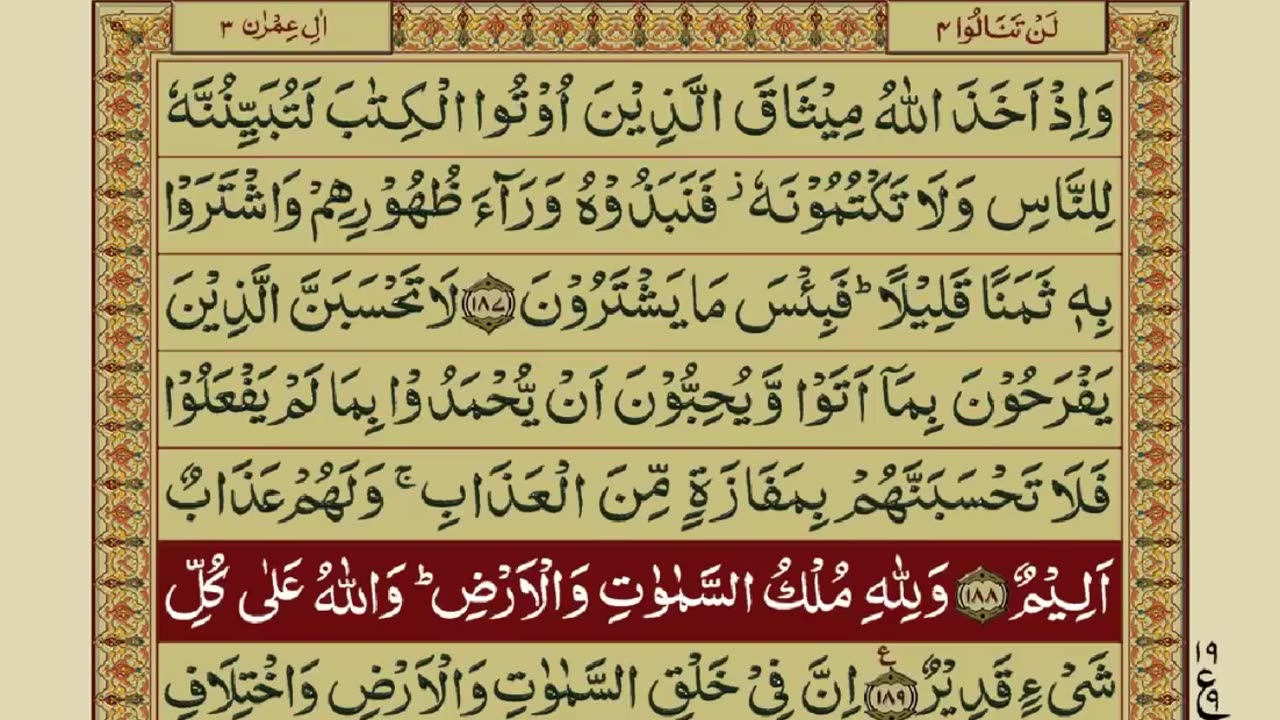 لَنْ تَنَالُوْا ۴
اٰلِ عِمْرٰن ۳
وَاِذْ اَخَذَ اللّٰهُ مِيْثَاقَ الَّذِيْنَ اُوْتُوا الْكِتٰبَ لَتُبَيِّنُنَّهٗ
لِلنَّاسِ وَلَا تَكْتُمُوْنَهٗ ۫ فَنَبَذُوْهُ وَرَآءَ ظُهُوْرِهِمْ وَاشْتَرَوْا
بِهٖ ثَمَنًا قَلِيْلًا ؕ فَبِئْسَ مَا يَشْتَرُوْنَ ۝۱۸۷ لَا تَحْسَبَنَّ الَّذِيْنَ
يَفْرَحُوْنَ بِمَاۤ اَتَوْا وَّيُحِبُّوْنَ اَنْ يُّحْمَدُوْا بِمَا لَمْ يَفْعَلُوْا
فَلَا تَحْسَبَنَّهُمْ بِمَفَازَةٍ مِّنَ الْعَذَابِ ۚ وَلَهُمْ عَذَابٌ
اَلِيْمٌ ۝۱۸۸ وَلِلّٰهِ مُلْكُ السَّمٰوٰتِ وَالْاَرْضِ ؕ وَاللّٰهُ عَلٰى كُلِّ
شَىْءٍ قَدِيْرٌ ۝۱۸۹ ع اِنَّ فِىْ خَلْقِ السَّمٰوٰتِ وَالْاَرْضِ وَاخْتِلَافِ
۱۹
ع
۹